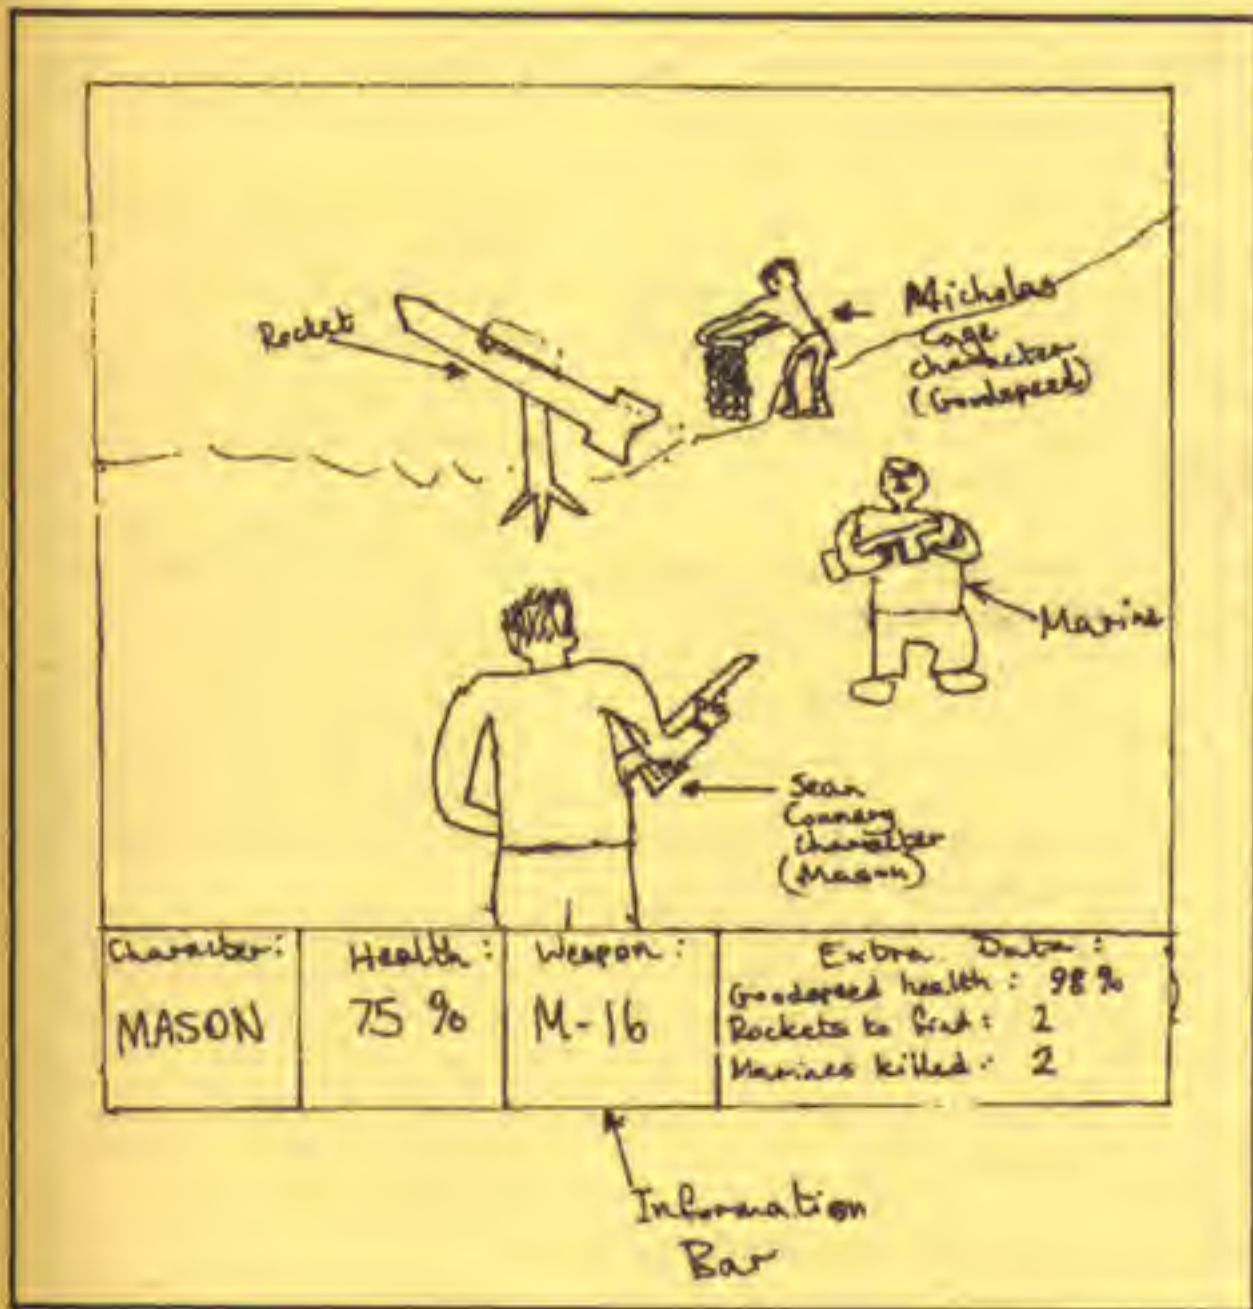 Rocket
Nicholas
Cage
character
(Goodspeed)
Marine
Sean
Connery
character
(Mason)
Character:
MASON
Health:
75 %
Weapon:
M-16
Extra Data:
Goodspeed health: 98%
Rockets to find: 2
Marines killed: 2
Information
Bar